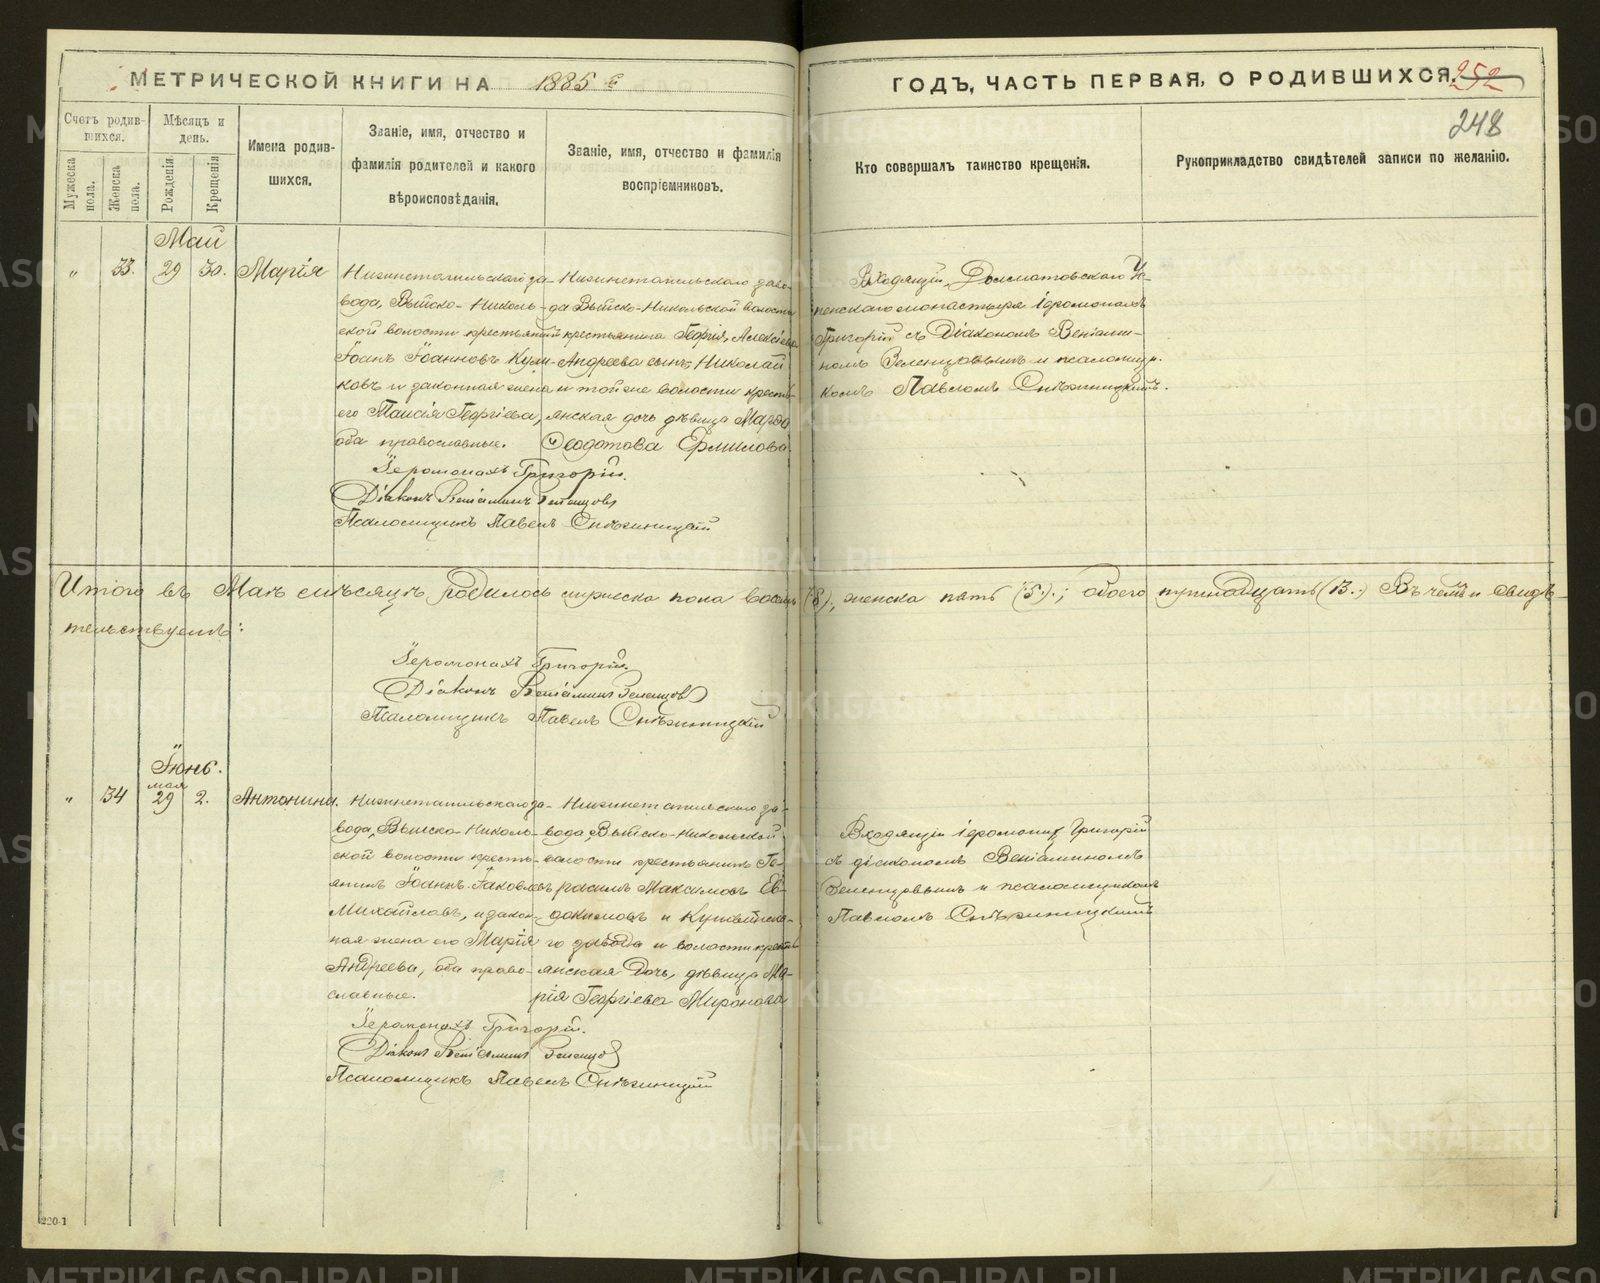 МЕТРИЧЕСКОЙ КНИГИ НА 1885 й
ГОДЪ, ЧАСТЬ ПЕРВАЯ, О РОДИВШИХСЯ.
252
248
Счетъ родив-
шихся.
Мужеска пола.
Женска пола.
Мѣсяцъ и
день.
Рожденія
Крещенія
Имена родив-
шихся.
Званіе, имя, отчество и
фамилія родителей и какого
вѣроисповѣданія.
Званіе, имя, отчество и фамилія
воспріемниковъ.
Кто совершалъ таинство крещенія.
Рукоприкладство свидѣтелей записи по желанію.
Май
" 33. 29 30. Марія
Нижнетагильскаго за-
вода, Выйско-Николь-
ской волости крестьянинъ
Іоаннъ Іоанновъ
и законная жена
его Таисія Георгіева,
оба православные.
Нижнетагильскаго заво-
да Выйско-Никольской волости
крестьянина Георгія Алексѣева
Андреева сынъ Николай
и той же волости кресть-
янская дочь дѣвица Марѳа
Ѳеодотова Ермилова
Входящій Долматовскаго Ус-
пенскаго монастыря іеромонахъ
Григорій съ Діакономъ Веніами-
номъ Зеленцовымъ и псаломщи-
комъ Павломъ Снѣжницкимъ.
Іеромонахъ Григорій.
Діаконъ Веніаминъ Зеленцовъ
Псаломщикъ Павелъ Снѣжницкій
Итого въ Маѣ мѣсяцѣ родилось мужеска пола восемь (8), женска пять (5).; обоего тринадцать (13.) Въ чемъ и свидѣ-
тельствуемъ:
Іеромонахъ Григорій.
Діаконъ Веніаминъ Зеленцовъ
Псаломщикъ Павелъ Снѣжницкій
Іюнь.
мая
" 34 29 2. Антонина.
Нижнетагильскаго за-
вода, Выйско-Николь-
ской волости кресть-
янинъ Іоаннъ Іаковлевъ
Михайловъ, и закон-
ная жена его Марія
Андреева, оба право-
славные.
Нижнетагильскаго за-
вода, Выйско-Никольской
волости крестьянинъ Ге-
расимъ Максимовъ Ев-
докимовъ и
го завода и волости кресть-
янская дочь, дѣвица Ма-
рія Георгіева Миронова
Входящій іеромонахъ Григорій
съ діакономъ Веніаминомъ
Зеленцовымъ и псаломщикомъ
Павломъ Снѣжницкимъ
Іеромонахъ Григорій.
Діаконъ Веніаминъ Зеленцовъ
Псаломщикъ Павелъ Снѣжницкій
220-1
METRIKI.GASO-URAL.RU